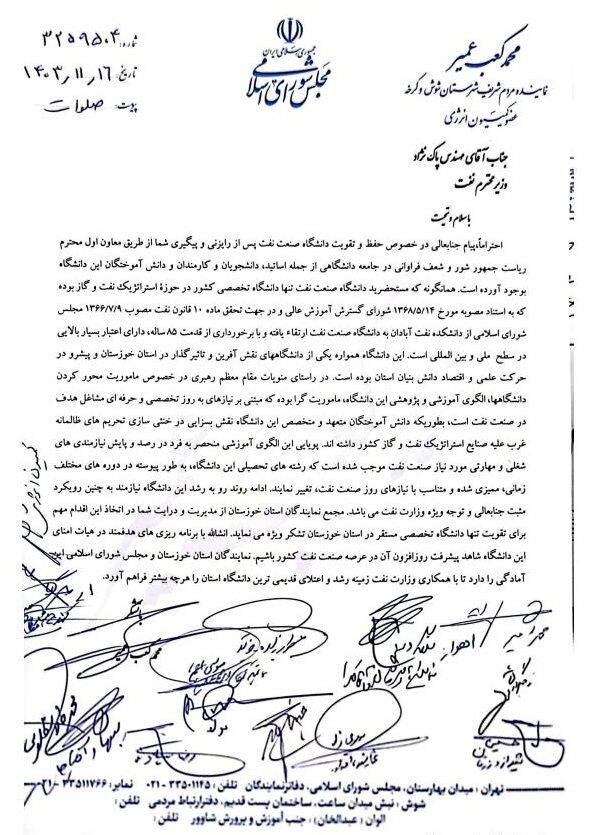 محمد کعب عمیر
نماینده مردم شریف شهرستان شوش و کرخه
عضو کمیسیون انرژی
جمهوری اسلامی ایران
مجلس شورای اسلامی
شماره: ۳۲۵۹۵۰۴
تاریخ: ۱۴۰۳/۱۱/۱۶
پیوست: صلوات
جناب آقای مهندس پاک نژاد
وزیر محترم نفت
با سلام و تحیت
احتراماً، پیام جنابعالی در خصوص حفظ و تقویت دانشگاه صنعت نفت پس از رایزنی و پیگیری شما از طریق معاون اول محترم
ریاست جمهور شور و شعف فراوانی در جامعه دانشگاهی از جمله اساتید، دانشجویان و کارمندان و دانش آموختگان این دانشگاه
بوجود آورده است. همانگونه که مستحضرید دانشگاه صنعت نفت تنها دانشگاه تخصصی کشور در حوزة استراتژیک نفت و گاز بوده
که به استناد مصوبه مورخ ۱۳۶۸/۵/۱۴ شورای گسترش آموزش عالی و در جهت تحقق ماده ۱۰ قانون نفت مصوب ۱۳۶۶/۷/۹ مجلس
شورای اسلامی از دانشکده نفت آبادان به دانشگاه صنعت نفت ارتقاء یافته و با برخورداری از قدمت ۸۵ ساله، دارای اعتبار بسیار بالایی
در سطح ملی و بین المللی است. این دانشگاه همواره یکی از دانشگاههای نقش آفرین و تاثیرگذار در استان خوزستان و پیشرو در
حرکت علمی و اقتصاد دانش بنیان استان بوده است. در راستای منویات مقام معظم رهبری در خصوص ماموریت محور کردن
دانشگاهها، الگوی آموزشی و پژوهشی این دانشگاه، ماموریت گرا بوده که مبتنی بر نیازهای به روز تخصصی و حرفه ای مشاغل هدف
در صنعت نفت است، بطوریکه دانش آموختگان متعهد و متخصص این دانشگاه نقش بسزایی در خنثی سازی تحریم های ظالمانه
غرب علیه صنایع استراتژیک نفت و گاز کشور داشته اند. پویایی این الگوی آموزشی منحصر به فرد در رصد و پایش نیازمندی های
شغلی و مهارتی مورد نیاز صنعت نفت موجب شده است که رشته های تحصیلی این دانشگاه، به طور پیوسته در دوره های مختلف
زمانی، ممیزی شده و متناسب با نیازهای روز صنعت نفت، تغییر نمایند. ادامه روند رو به رشد این دانشگاه نیازمند به چنین رویکرد
مثبت جنابعالی و توجه ویژه وزارت نفت می باشد. مجمع نمایندگان استان خوزستان از مدیریت و درایت شما در اتخاذ این اقدام مهم
برای تقویت تنها دانشگاه تخصصی مستقر در استان خوزستان تشکر ویژه می نماید. انشالله با برنامه ریزی های هدفمند در هیات امنای
این دانشگاه شاهد پیشرفت روزافزون آن در عرصه صنعت نفت کشور باشیم. نمایندگان استان خوزستان و مجلس شورای اسلامی این
آمادگی را دارد تا با همکاری وزارت نفت زمینه رشد و اعتلای قدیمی ترین دانشگاه استان را هرچه بیشتر فراهم آورد.
محمد امیر
اهواز
محمد کعب عمیر
تهران: میدان بهارستان، مجلس شورای اسلامی، دفاتر نمایندگان تلفن: ۳۳۵۰۱۱۴۵-۰۲۱ نمابر: ۳۳۵۱۱۷۶۶-۰۲۱
شوش: نبش میدان ساعت، ساختمان پست قدیم، دفتر ارتباط مردمی تلفن:
الوان: (عبدالخان): جنب آموزش و پرورش شاوور تلفن: